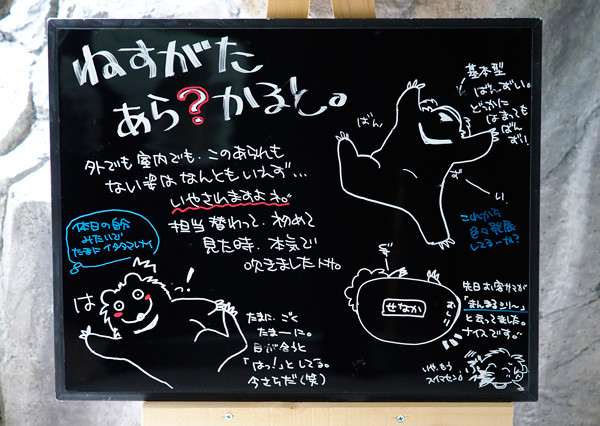 ねすがた
あら?かると。
外でも室内でも、このあられも
ない姿はなんともいえず…
いやされますよネ。
担当替わって、初めて
見た時、本気で
吹きましたトサ。
休日の自分
みたいで
たまにイタタマレナイ
は
っ!
たまに、ごく
たまーに。
目が合うと
「はっ!」としてる。
今さらだ(笑)
基本型
ばんざい。
どっかに
はまっても
ばん
ざい!
ばん
ざ
い
これから
色々発展
してるーかな?
せなか
おしり
先日お客サマが
「まんまるシリ〜」
と言ってました。
ナイスです。
いや、もう
スイマセン